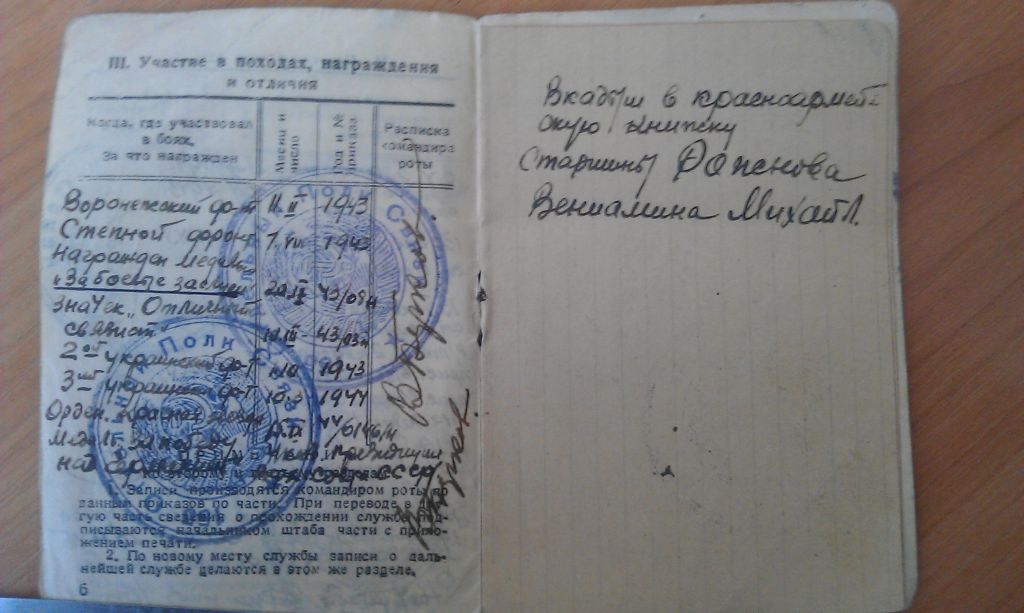 III. Участие в походах, награждения
и отличия
Когда, где участвовал
в боях,
За что награжден
Месяц и
число
Год и №
приказа
Расписка
командира
роты
Воронежский фр-т 11. II 1943
Степной фронт 7. VII 1943
Награжден медалью
"За боевые заслуги" 43/09н
Значек "Отличный
связист" 43/03н
2ой украинский фр-т 1943
3ий украинский фр-т 1944
Орден "Красная звезда 44/0146/н
Медаль За победу
над СССР
1. Записи производятся командиром роты по
данным приказов по части. При переводе в дру-
гую часть сведения о прохождении службы под-
писываются начальником штаба части с прило-
жением печати.
2. По новому месту службы записи о даль-
нейшей службе делаются в этом же разделе.
6
Полк Связи
Полк Связи
Вкадыш в красноармей-
скую книжку
Старшины
Вениамина Михайл.